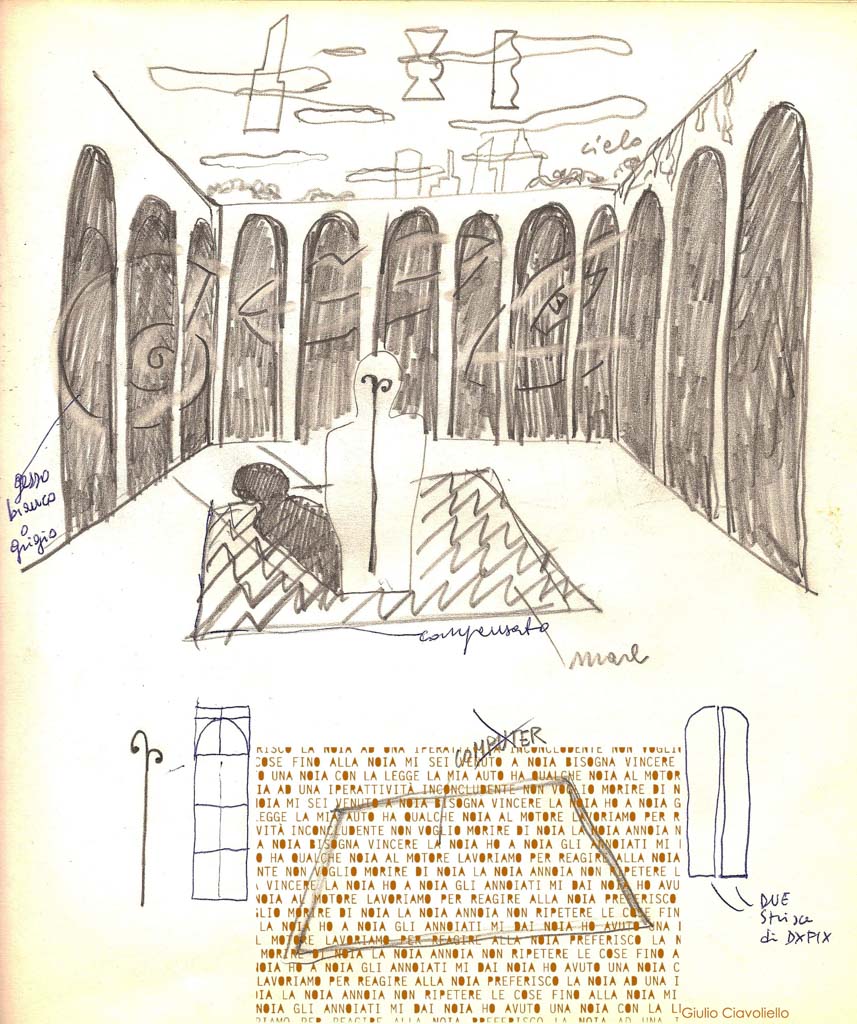 cielo
gesso
bianco
o
grigio
compensato
mare
COMPUTER
RISCO LA NOIA AD UNA IPERATTIVITÀ INCONCLUDENTE NON VOGLIO
COSE FINO ALLA NOIA MI SEI VENUTO A NOIA BISOGNA VINCERE
O UNA NOIA CON LA LEGGE LA MIA AUTO HA QUALCHE NOIA AL MOTOR
IA AD UNA IPERATTIVITÀ INCONCLUDENTE NON VOGLIO MORIRE DI N
NOIA MI SEI VENUTO A NOIA BISOGNA VINCERE LA NOIA HO A NOIA G
LEGGE LA MIA AUTO HA QUALCHE NOIA AL MOTORE LAVORIAMO PER R
VITÀ INCONCLUDENTE NON VOGLIO MORIRE DI NOIA LA NOIA ANNOIA N
A NOIA BISOGNA VINCERE LA NOIA HO A NOIA GLI ANNOIATI MI
O HA QUALCHE NOIA AL MOTORE LAVORIAMO PER REAGIRE ALLA NOIA
NTE NON VOGLIO MORIRE DI NOIA LA NOIA ANNOIA NON RIPETERE L
A VINCERE LA NOIA HO A NOIA GLI ANNOIATI MI DAI NOIA HO AVU
NOIA AL MOTORE LAVORIAMO PER REAGIRE ALLA NOIA PREFERISCO
GLIO MORIRE DI NOIA LA NOIA ANNOIA NON RIPETERE LE COSE FIN
LA NOIA HO A NOIA GLI ANNOIATI MI DAI NOIA HO AVUTO UNA I
L MOTORE LAVORIAMO PER REAGIRE ALLA NOIA PREFERISCO LA N
MORIRE DI NOIA LA NOIA ANNOIA NON RIPETERE LE COSE FINO A
NOIA HO A NOIA GLI ANNOIATI MI DAI NOIA HO AVUTO UNA NOIA C
LAVORIAMO PER REAGIRE ALLA NOIA PREFERISCO LA NOIA AD UNA I
IA LA NOIA ANNOIA NON RIPETERE LE COSE FINO ALLA NOIA MI
NOIA GLI ANNOIATI MI DAI NOIA HO AVUTO UNA NOIA CON LA LI
RIAMO PER REAGIRE ALLA NOIA PREFERISCO LA NOIA AD UNA
DUE
Strisce
di DXPIX
Giulio Ciavoliello